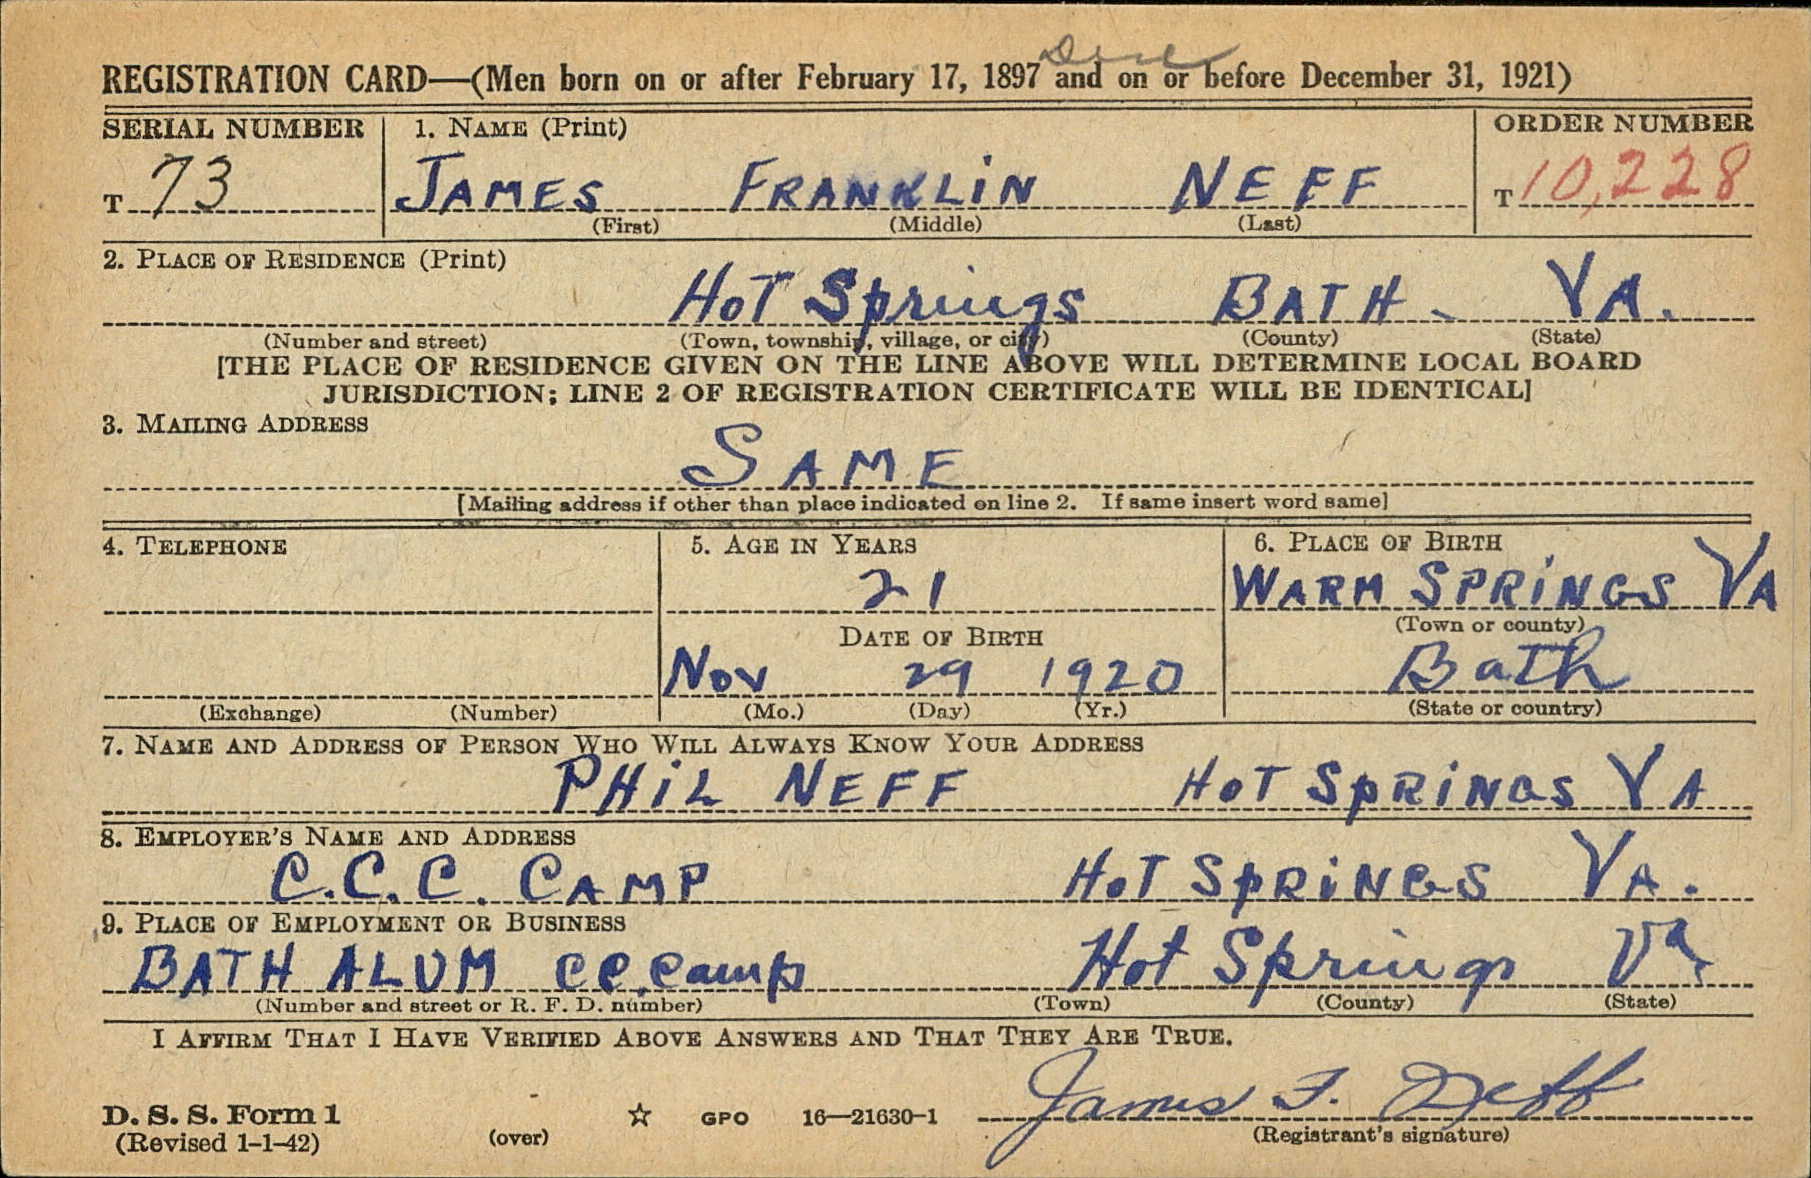 REGISTRATION CARD—(Men born on or after February 17, 1897 and on or before December 31, 1921)
SERIAL NUMBER 1. NAME (Print) ORDER NUMBER
T 73 JAMES FRANKLIN NEFF T 10,228
(First) (Middle) (Last)
2. PLACE OF RESIDENCE (Print)
HOT Springs BATH VA.
(Number and street) (Town, township, village, or city) (County) (State)
[THE PLACE OF RESIDENCE GIVEN ON THE LINE ABOVE WILL DETERMINE LOCAL BOARD
JURISDICTION; LINE 2 OF REGISTRATION CERTIFICATE WILL BE IDENTICAL]
3. MAILING ADDRESS
SAME
[Mailing address if other than place indicated on line 2. If same insert word same]
4. TELEPHONE 5. AGE IN YEARS 6. PLACE OF BIRTH
21 WARM SPRINGS VA
(Town or county)
DATE OF BIRTH
Nov 29 1920 Bath
(Exchange) (Number) (Mo.) (Day) (Yr.) (State or country)
7. NAME AND ADDRESS OF PERSON WHO WILL ALWAYS KNOW YOUR ADDRESS
PHIL NEFF HOT SPRINGS VA
8. EMPLOYER'S NAME AND ADDRESS
C.C.C. CAMP HOT SPRINGS VA.
9. PLACE OF EMPLOYMENT OR BUSINESS
BATH ALUM CC.Camp Hot Springs Va.
(Number and street or R. F. D. number) (Town) (County) (State)
I AFFIRM THAT I HAVE VERIFIED ABOVE ANSWERS AND THAT THEY ARE TRUE.
James F. Neff
D. S. S. Form 1
(Revised 1-1-42) (over) ☆ GPO 16—21630-1 (Registrant's signature)